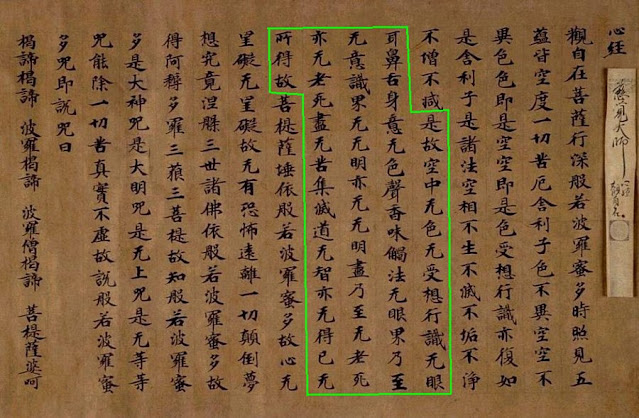 心経
觀自在菩薩行深般若波羅蜜多時照見五
蘊皆空度一切苦厄舍利子色不異空空不
異色色即是空空即是色受想行識亦復如
是舍利子是諸法空相不生不滅不垢不淨
不増不減是故空中无色无受想行識无眼
耳鼻舌身意无色聲香味觸法无眼界乃至
无意識界无无明亦无无明盡乃至无老死
亦无老死盡无苦集滅道无智亦无得已无
所得故菩提薩埵依般若波羅蜜多故心无
罣礙无罣礙故无有恐怖遠離一切顛倒夢
想究竟涅槃三世諸佛依般若波羅蜜多故
得阿耨多羅三藐三菩提故知般若波羅蜜
多是大神咒是大明咒是无上咒是无等等
咒能除一切苦真實不虛故說般若波羅蜜
多咒即說咒曰
揭諦揭諦 波羅揭諦 波羅僧揭諦 菩提薩婆呵